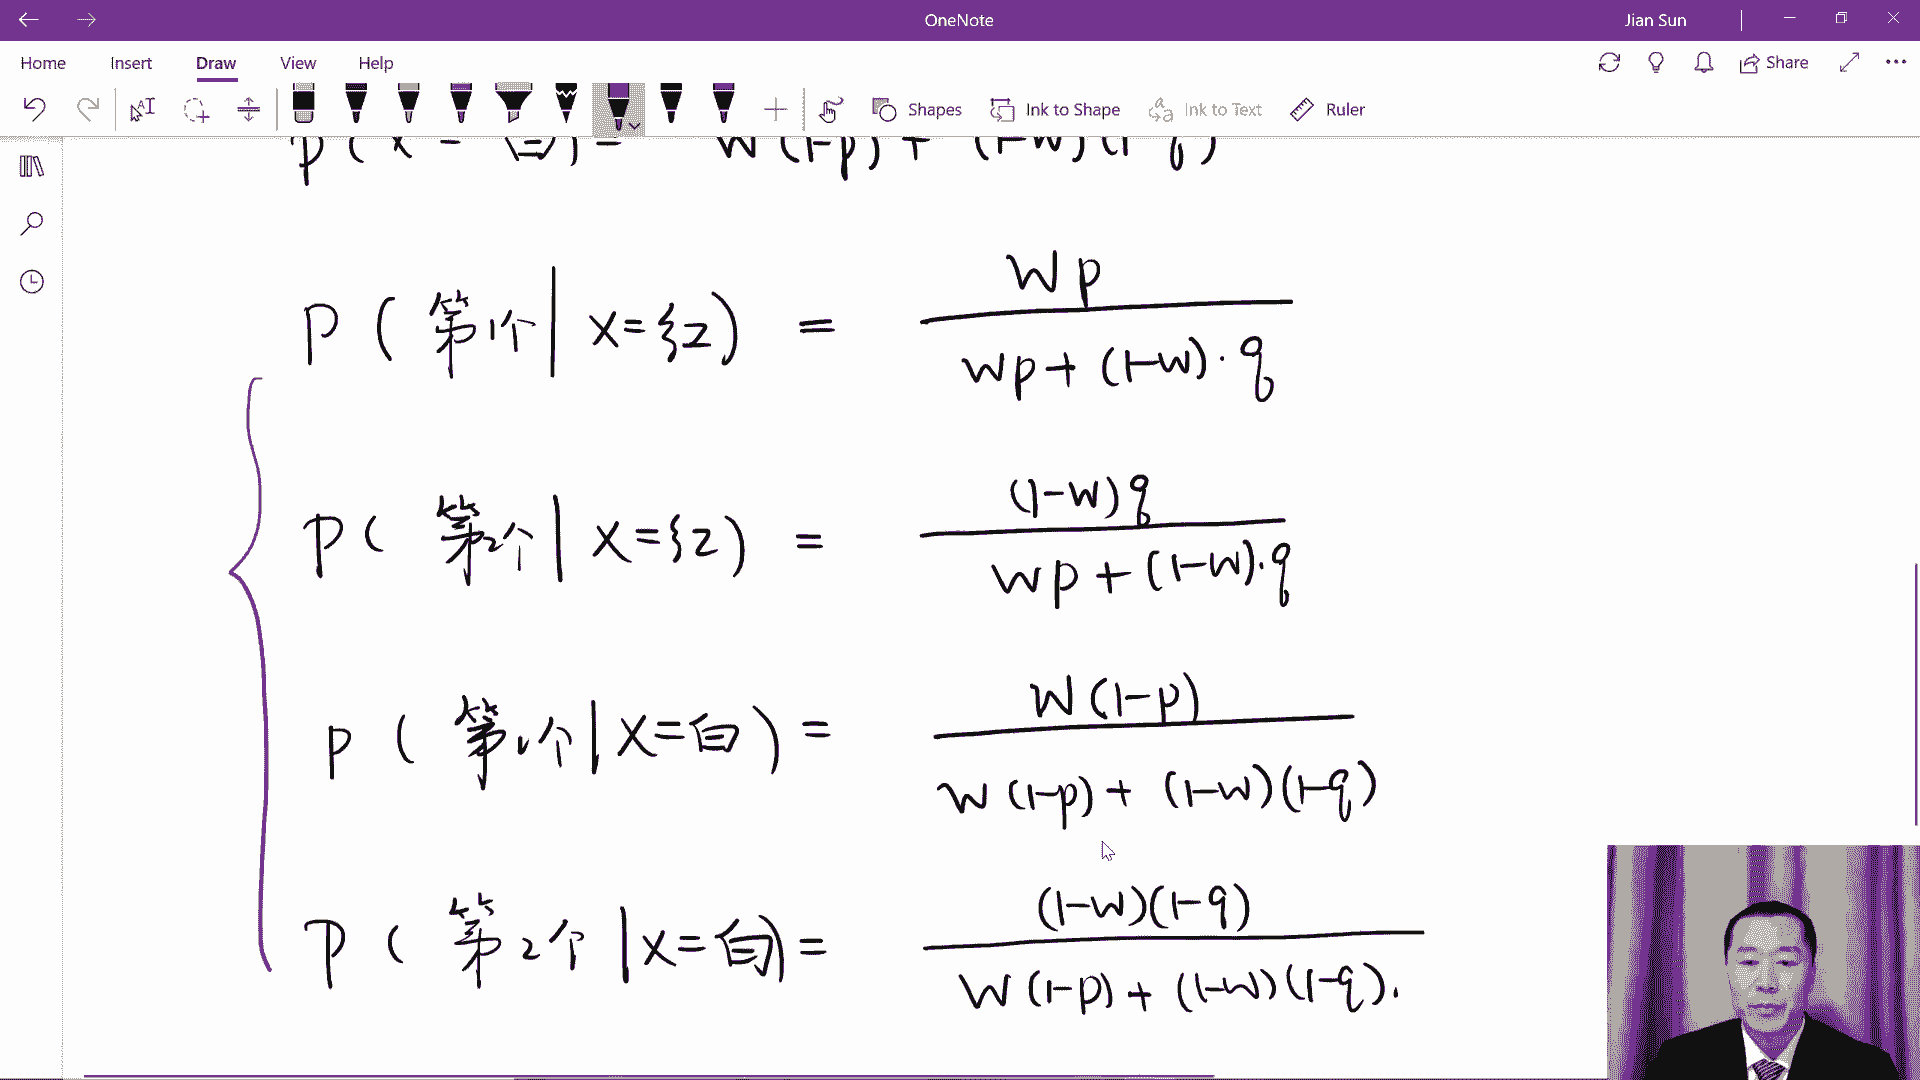 OneNote
Jian Sun
Home Insert Draw View Help
Share
Shapes Ink to Shape Ink to Text Ruler
P(X=白)= W(1-p)+(1-w)(1-q)
P(第1个|X=红)= Wp / wp+(1-w)·q
P(第2个|X=红)= (1-w)q / wp+(1-w)·q
P(第1个|X=白)= W(1-p) / W(1-p)+(1-w)(1-q)
P(第2个|X=白)= (1-w)(1-q) / W(1-p)+(1-w)(1-q).